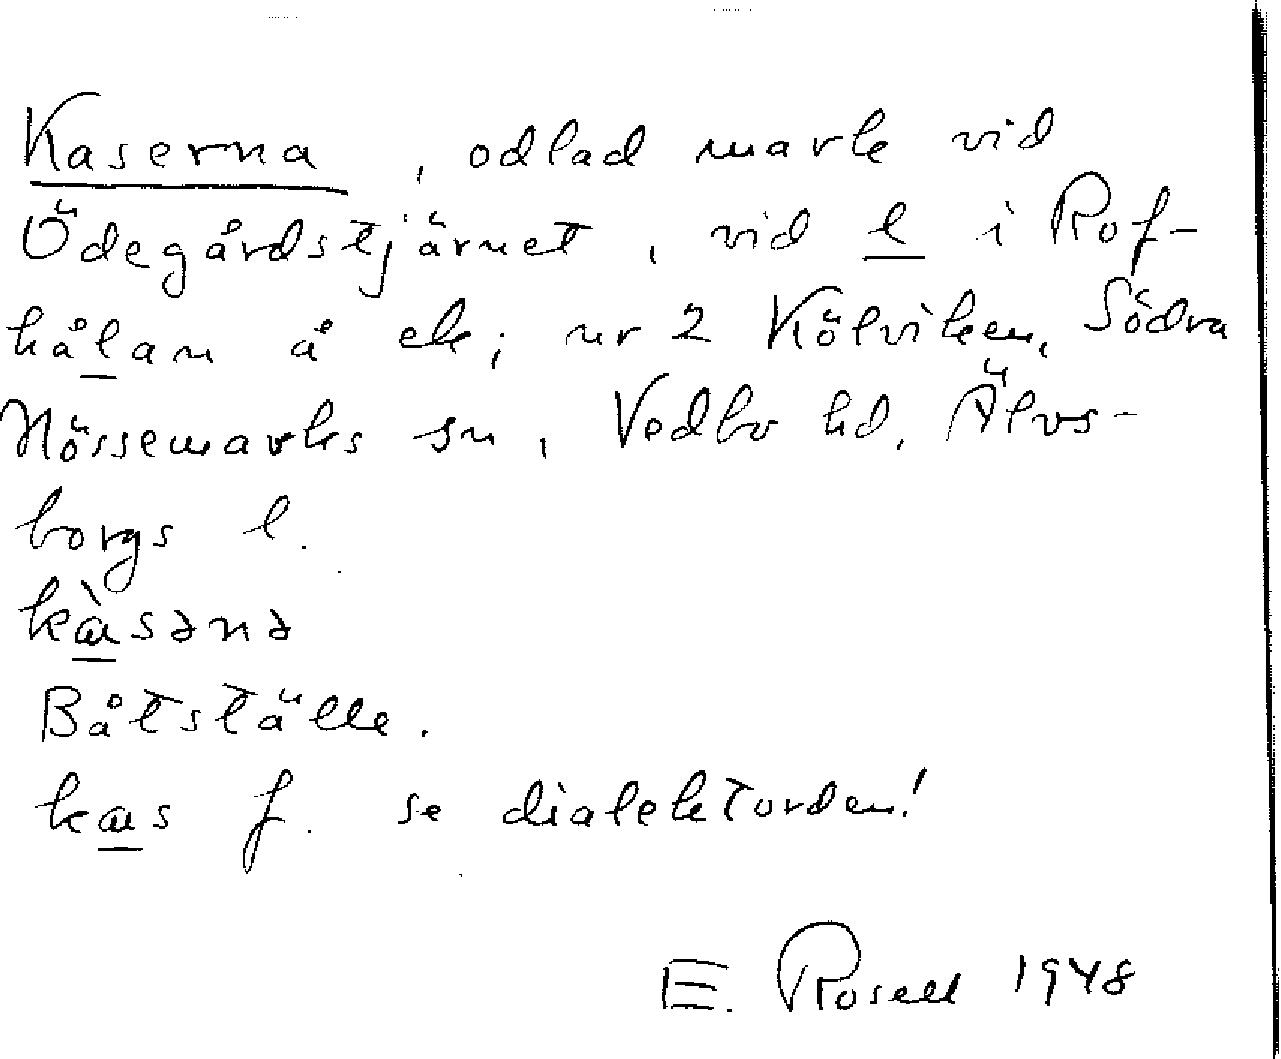 Kaserna, odlad mark vid
Ödegårdstjärnet, vid l i Rof-
hålan å ek; nr 2 Kölviken, Södra
Nössemarks sn, Vedbo hd, Älvs-
borgs l.
kàsənə
Båtställe.
kas f. se dialektorden!
E. Rosell 1948